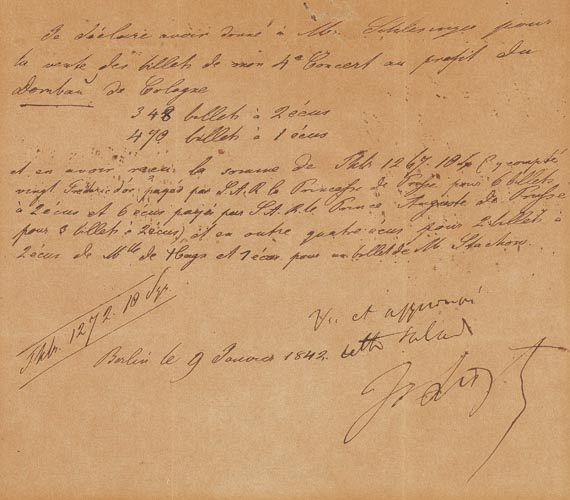 Je déclare avoir donné à Mr. Schlesinger pour
la vente des billets de mon 4e Concert au profit du
Dombau de Cologne
348 billets à 2 écus
478 billets à 1 écus
et en avoir reçu la somme de Thlr. 1267. 18 Sgr (y compté
vingt Frédéricdor, payés par S.A.R. la Princesse de Prusse pour 6 billets
à 2 écus et 6 écus payés par S.A.R. le Prince Auguste de Prusse
pour 3 billets à 2 écus) et en outre quatre écus pour 2 billet à
2 écus de Mlle de et 1 écu pour un billet de Mr
Thlr. 1272. 18 Sgr.
Vu et approuvé
Berlin le 9 Janvier 1842.
F. Liszt